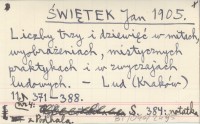 ŚWIĘTEK Jan 1905.
Liczby trzy i dziewięć w mitach,
wyobrażeniach, mistycznych
praktykach i w zwyczajach
ludowych. – Lud (Kraków)
11, 371–388.
S. 384: notatka
z Podhala